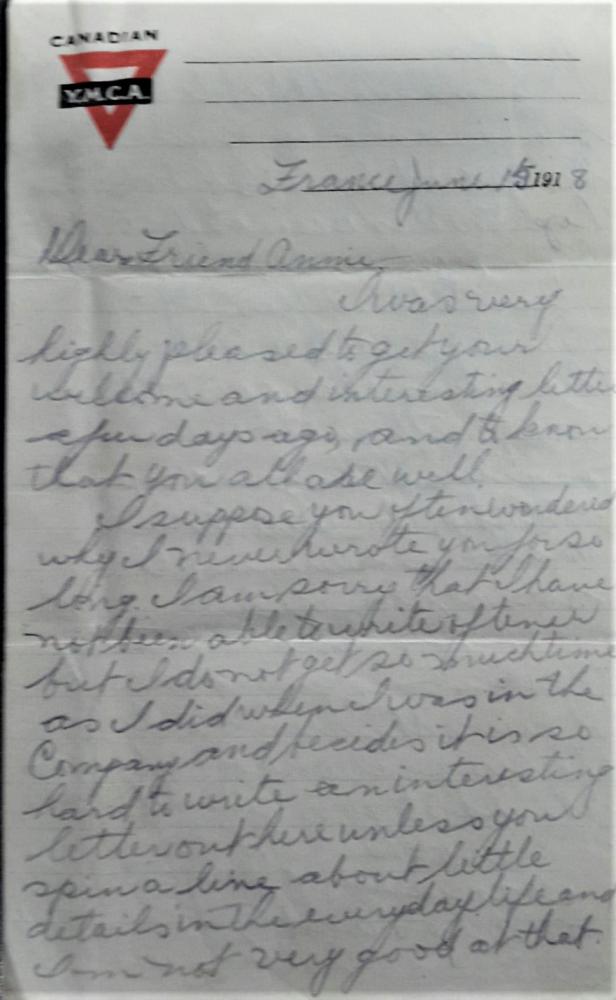 CANADIAN
Y.M.C.A.
France June 15 1918
Dear Friend Annie
I was very
highly pleased to get your
welcome and interesting lette
a few days ago, and to know
that you all are well.
I suppose you often wondered
why I never wrote you for so
long. I am sorry that I have
not been able to write oftener
but I do not get so much time
as I did when I was in the
Company and becides it is so
hard to write an interesting
letter out here unless you
spin a line about little
details in the everyday life and
I'm not very good at that.